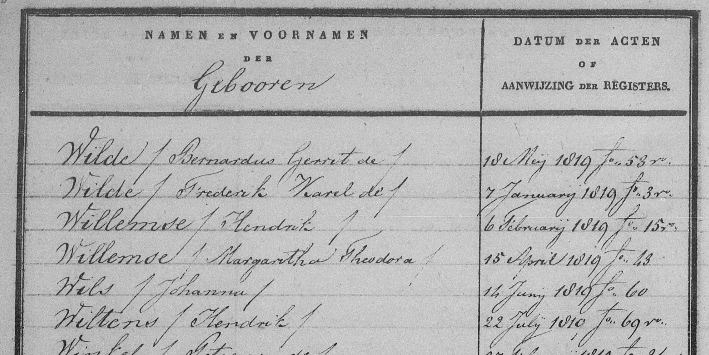 NAMEN EN VOORNAMEN
DER
Gebooren
DATUM DER ACTEN
OF
AANWIJZING DER REGISTERS.
Wilde / Bernardus Gerrit de / 18 Meij 1819 fo. 53 ro.
Wilde / Frederik Karel de / 7 Januarij 1819 fo. 3 ro.
Willemse / Hendrik / 6 Februarij 1819 fo. 15 ro.
Willemse / Margaretha Theodora / 15 April 1819 fo. 43
Wils / Johanna / 14 Junij 1819 fo. 60
Wiltens / Hendrik / 22 Julij 1819 fo. 69 ro.